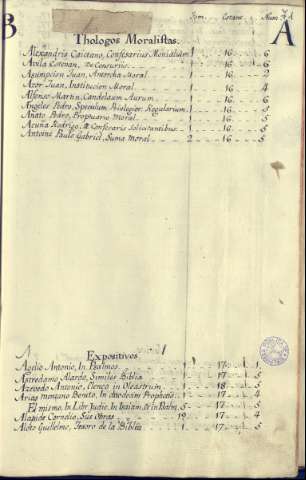 B Tom. Estant. Num. A
Thologos Moralistas.
Alexandris Caietano, Confesarius Monialium 1 16 6
Avila Estevan, De Censuris 1 16 6
Asumpcion Juan, Anarcha Moral 1 16 2
Azor Juan, Institucion Moral 1 16 4
Alfonso Martin, Candelaum Aurum 1 16 6
Angeles Pedro, Speculum Regularium 1 16 5
Añato Pedro, Moral 1 16 5
Acuña Rodrigo, Confesaris Solicitantibus 1 16 5
Antoine Paulo Gabriel, Suma Moral 2 16 5
Expositivos
Agelio Antonio, In Psalmos 1 17 1
Alardo, Similes Biblia 1 17 5
Azevedo Antonio, Elenco in Oleastrum 1 18 5
Arias montano Benito, In duodecim Prophetis 1 17 4
El mismo, In Libr Judic. In Isaiam, & in Psalm. 5 17 5
Alapide Cornelio, Sus Obras 19 17 4
Guillelmo, Tesoro de la Biblia 1 17 5